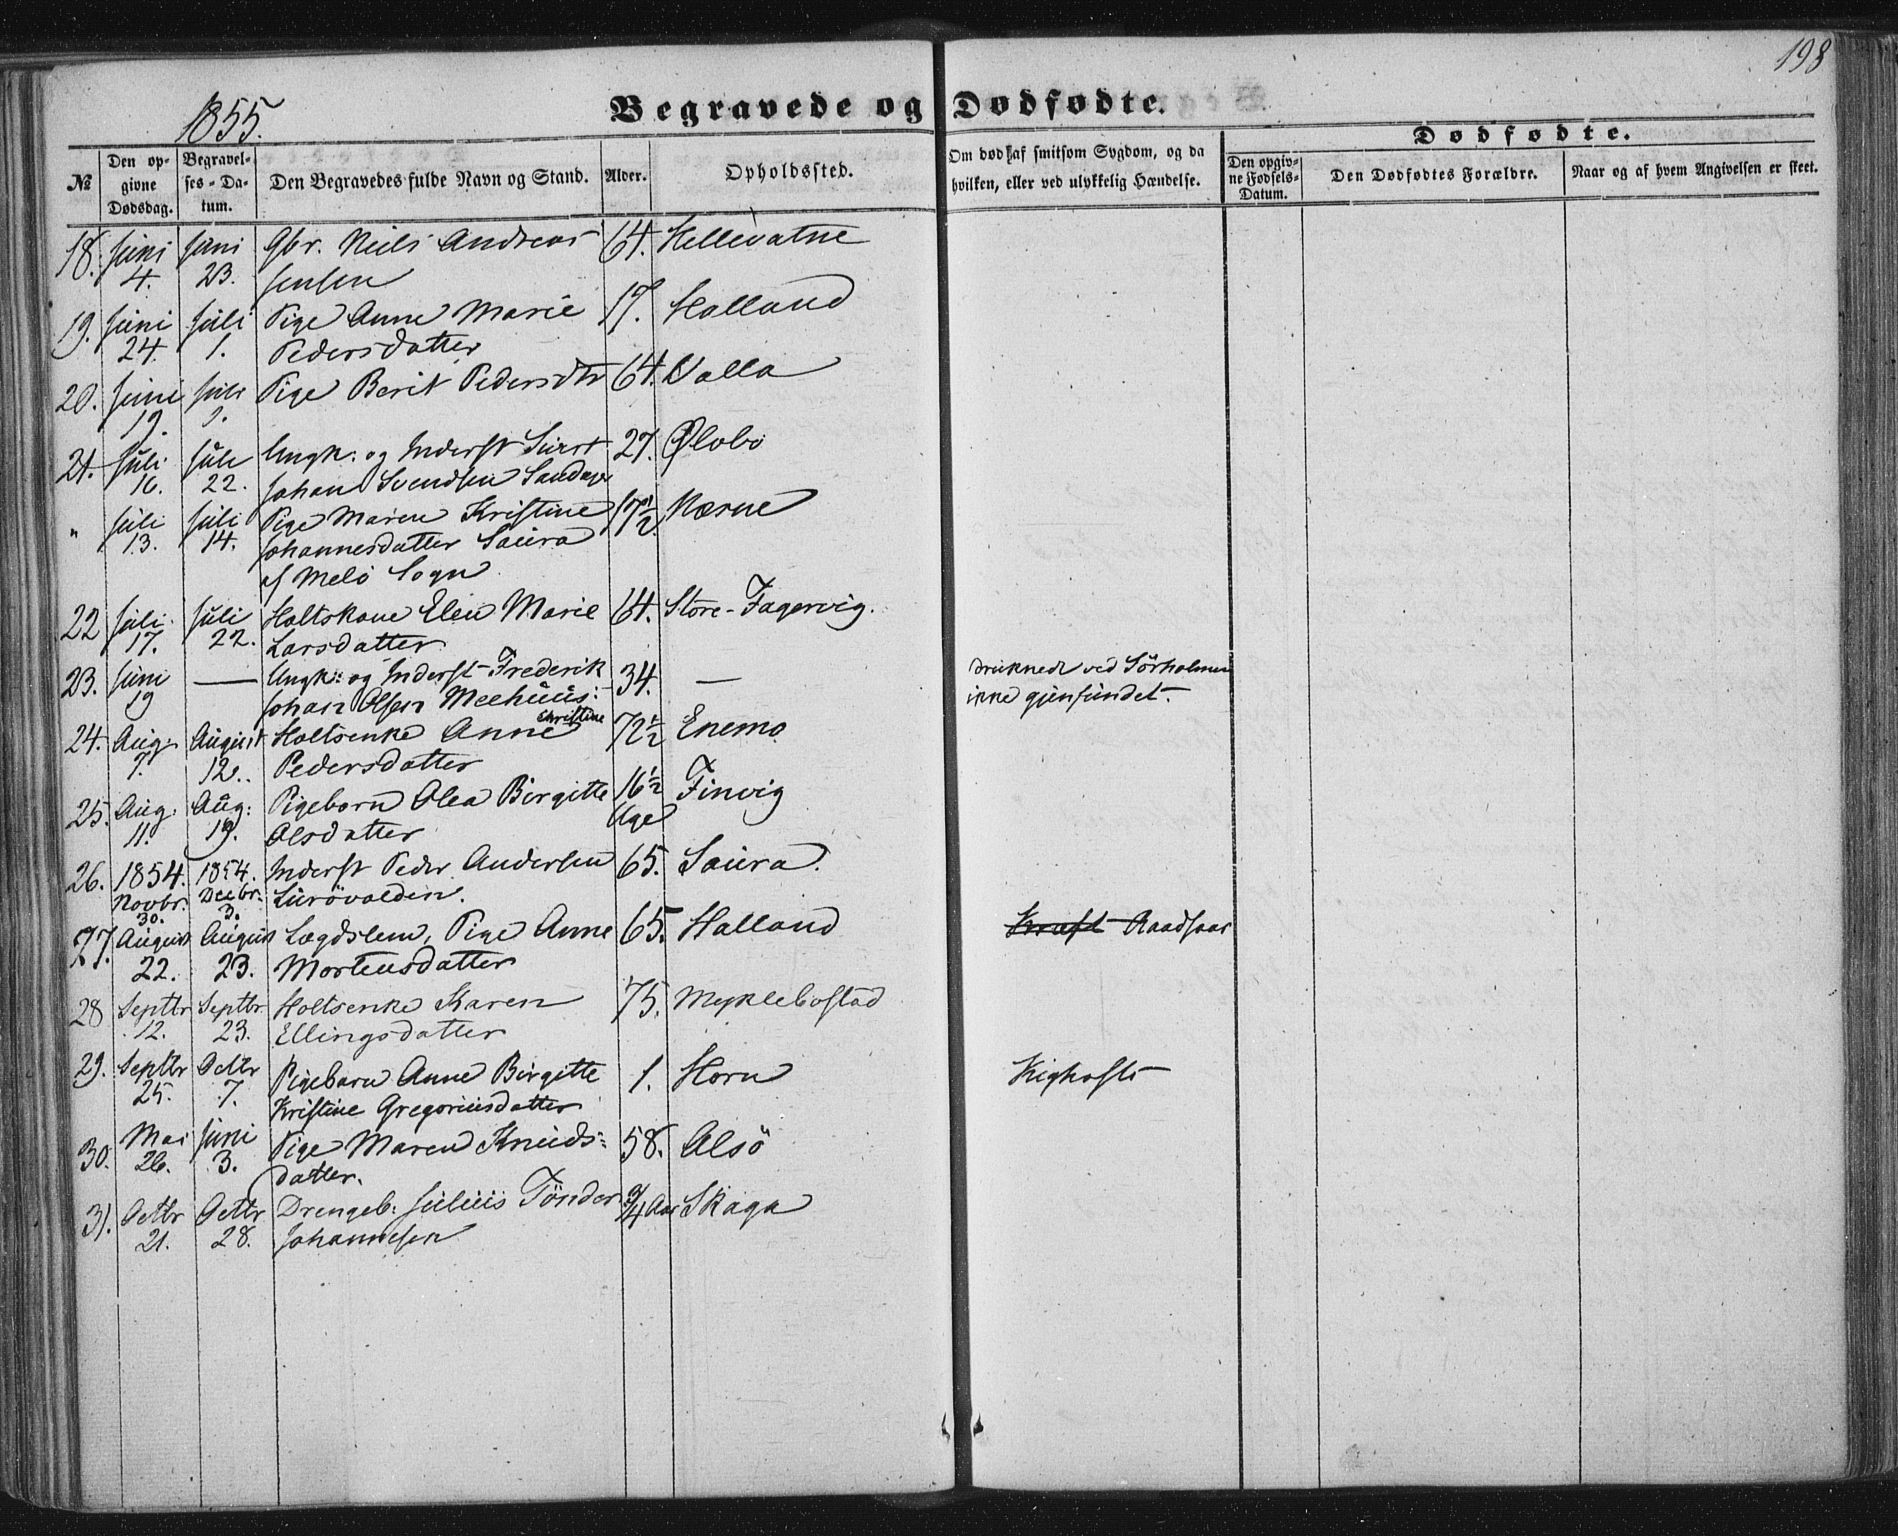 198
1855.
Begravede og Dødfødte.
Dødfødte.
№
Den op-
givne
Dødsdag.
Begravel-
ses-Da-
tum.
Den Begravedes fulde Navn og Stand.
Alder.
Opholdssted.
Om død af smitsom Sygdom, og da
hvilken, eller ved ulykkelig Hændelse.
Den opgiv-
ne Fødsels-
Datum.
Den Dødfødtes Forældre.
Naar og af hvem Angivelsen er skeet.
18. Juni Juni Gbr. Niels Andreas 64. Hellevatne
4. 23. Jensen
19. Juni Juli Pige Anne Marie 17. Halland
24. 1. Pedersdatter
20. Juni Juli Pige Berit Pedersdtr 64. Valla
19. 1.
21. Juli Juli Ungk: og Inderst Sivert 27. Ølobo
16. 22. Johan Svendsen
" Juli Juli Pige Maren Kristine 17½ Nærne
13. 14. Johannesdatter Saura
af Melö Sogn
22 Juli Juli Holtskone Elen Marie 64. Store-Fagervig.
17. 22. Larsdatter
23. Juni — Ungk: og Inderst Frederik 34. — Druknede ved Sörholmen
19 Johan Olsen Meehuus: ikke gjenfundet.
Christine
24. Aug. August Holtsenke Anne 72½ Enemo
7. 12. Pedersdatter
25. Aug. Aug: Pigebarn Olea Birgitte 16½ Finvig
11. 19. Olsdatter Uge
26. 1854. 1854. Inderst Peder Andersen 65. Saura.
Novbr. Decbr. Lurövolden.
30. 3.
27. August August Lægdslem, Pige Anne 65. Halland Kræft Raadsaar
22. 23. Mortensdatter
28 Septbr Septbr Holtsenke Karen 75. Myklebostad
12. 23. Ellingsdatter
29. Septbr Octbr Pigebarn Anne Birgitte 1. Horn Kighoste
25. 7. Kristine Gregoriusdatter
30. Mai Juni Pige Maren Knuds- 58. Alsö
26. 3. datter.
31. Octbr Octbr Drengeb: Julius Tönder ¾ Aar Skaga
21. 28. Johannesen